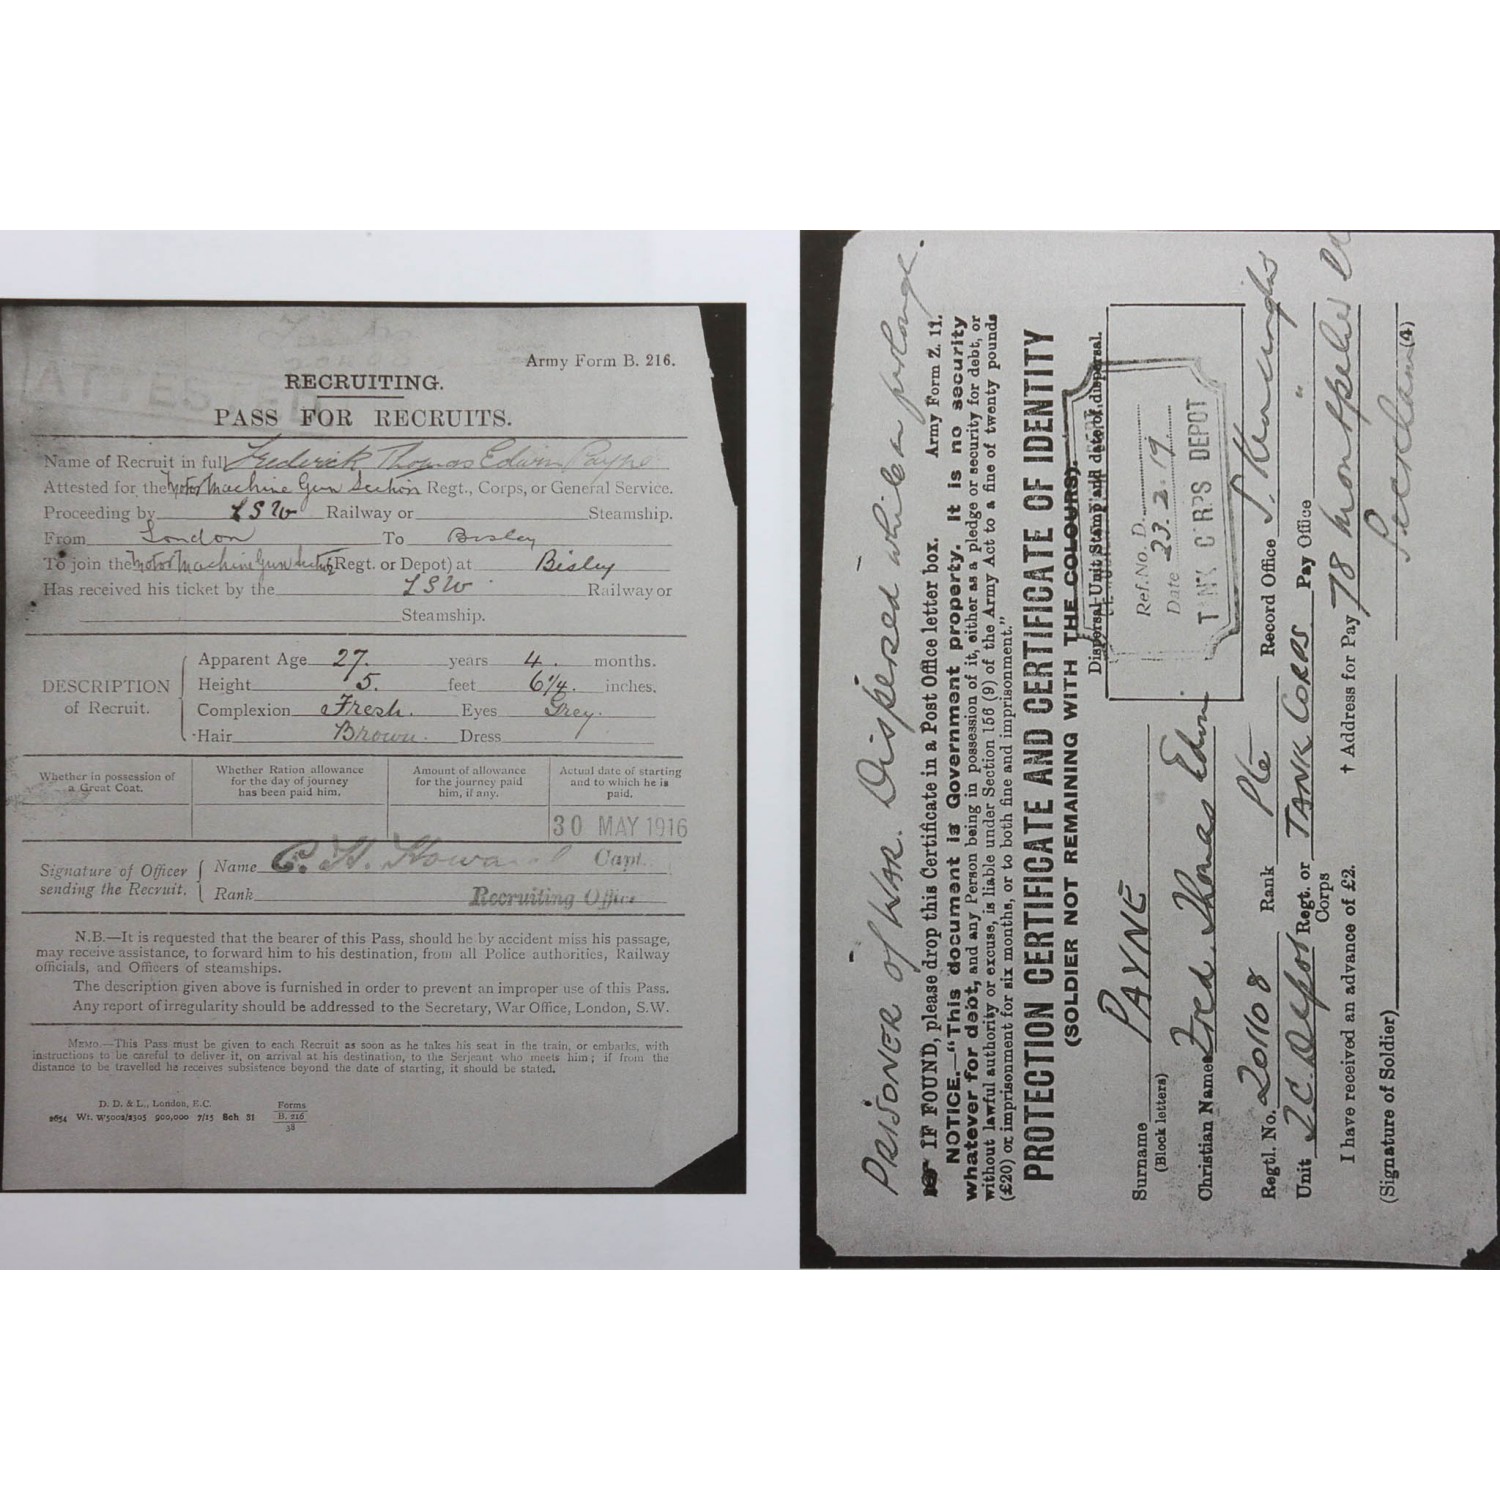 ATTESTED
Army Form B. 216.
RECRUITING.
PASS FOR RECRUITS.
Name of Recruit in full Frederick Thomas Edwin Payne
Attested for the Motor Machine Gun Section Regt., Corps, or General Service.
Proceeding by LSW Railway or Steamship.
From London To Bisley
To join the Motor Machine Gun Section Regt. or Depot) at Bisley
Has received his ticket by the LSW Railway or
Steamship.
DESCRIPTION
of Recruit.
Apparent Age 27. years 4. months.
Height 5. feet 6¼. inches.
Complexion Fresh. Eyes Grey.
Hair Brown. Dress
Whether in possession of
a Great Coat.
Whether Ration allowance
for the day of journey
has been paid him.
Amount of allowance
for the journey paid
him, if any.
Actual date of starting
and to which he is
paid.
30 MAY 1916
Signature of Officer
sending the Recruit.
Name C. H. Howard Capt.
Rank Recruiting Officer
N.B.—It is requested that the bearer of this Pass, should he by accident miss his passage,
may receive assistance, to forward him to his destination, from all Police authorities, Railway
officials, and Officers of steamships.
The description given above is furnished in order to prevent an improper use of this Pass.
Any report of irregularity should be addressed to the Secretary, War Office, London, S.W.
MEMO.—This Pass must be given to each Recruit as soon as he takes his seat in the train, or embarks, with
instructions to be careful to deliver it, on arrival at his destination, to the Serjeant who meets him; if from the
distance to be travelled he receives subsistence beyond the date of starting, it should be stated.
D. D. & L., London, E.C.
2654 Wt. W5002/2305 900,000 7/15 Sch 31
Forms
B. 216
38
PRISONER of WAR. Dispersed while on furlough.
IF FOUND, please drop this Certificate in a Post Office letter box. Army Form Z. 11.
NOTICE.—"This document is Government property. It is no security
whatever for debt, and any Person being in possession of it, either as a pledge or security for debt, or
without lawful authority or excuse, is liable under Section 156 (9) of the Army Act to a fine of twenty pounds
(£20) or imprisonment for six months, or to both fine and imprisonment."
PROTECTION CERTIFICATE AND CERTIFICATE OF IDENTITY
(SOLDIER NOT REMAINING WITH THE COLOURS).
Dispersal Unit Stamp and date of dispersal.
Ref. No. D.
Date 23.2.19
TANK CORPS DEPOT
Surname PAYNE
(Block letters)
Christian Names Fred Thomas Edwin
Regtl. No. 201108 Rank Pte Record Office
Unit T.C. Depot Regt. or Corps TANK CORPS Pay Office "
I have received an advance of £2. † Address for Pay 78
Peckham
(Signature of Soldier) (4)